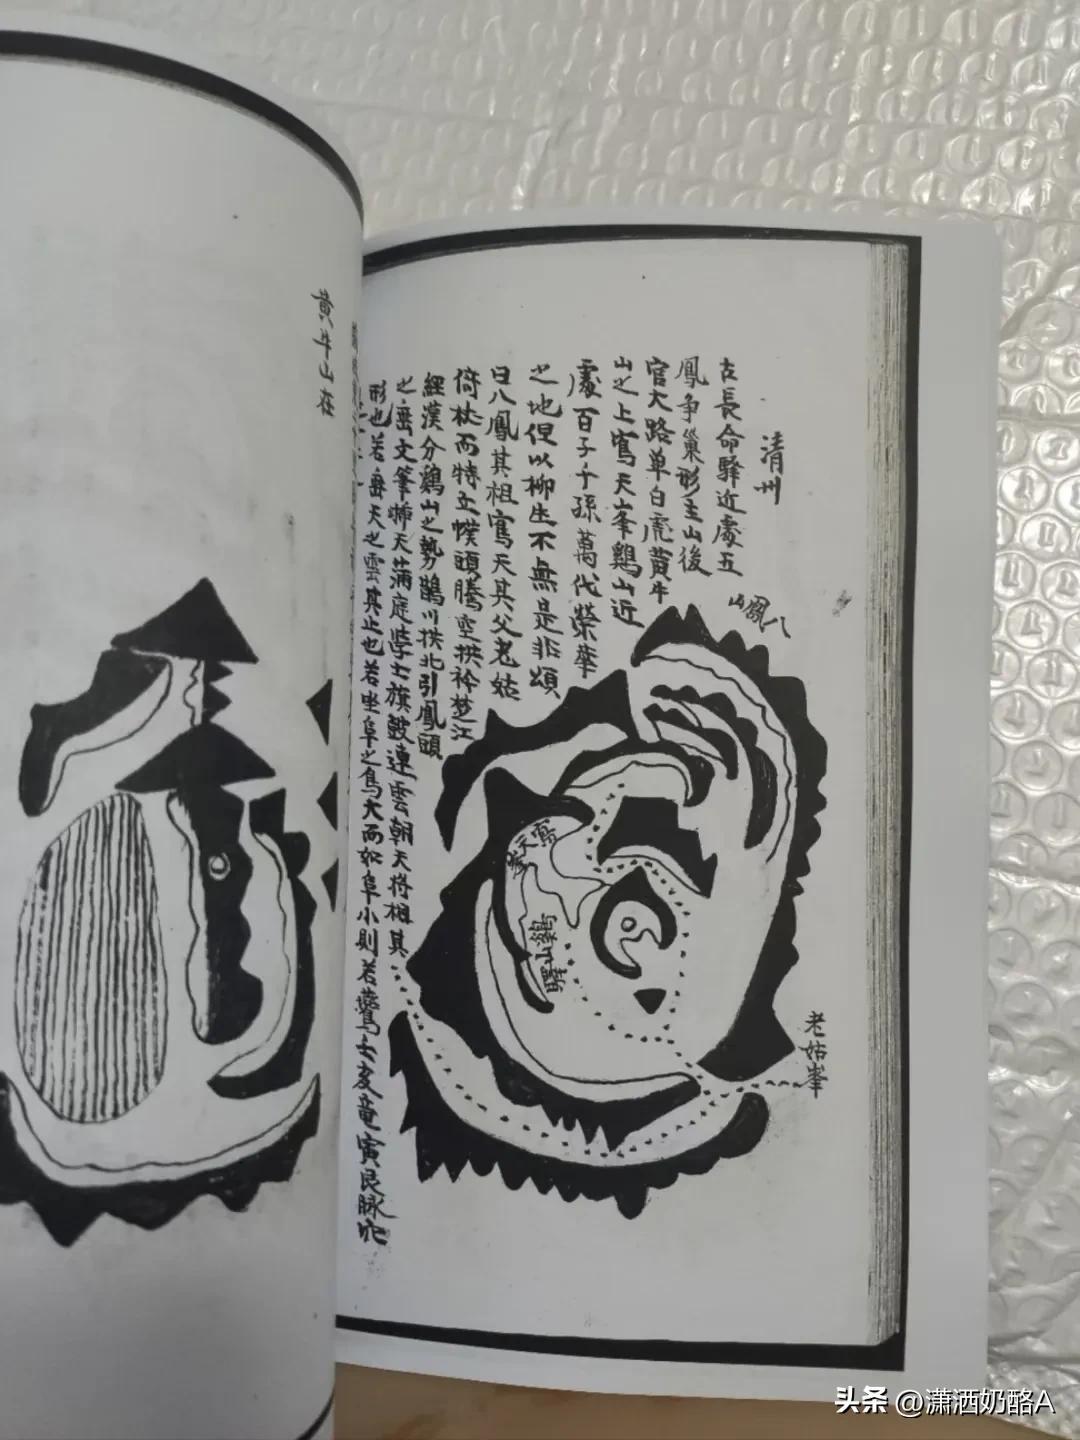 清州
古長命驛近處五
鳳爭巢形主山後
官大路单白虎黄牛
山之上寫天峯鷄山近
處百子千孫萬代榮華
之地但以柳生不無是非頌
曰八鳳其祖寫天其父老姑
倚杖而特立幞頭騰空拱衿楚江
經漢分鷄山之勢鵲川拱北引鳳頭
之垂文筆揷天蒲庭學士旗皷連雲朝天将相其
形也若垂天之雲其止也若坐阜之鳥大而如阜小則若鶯士亥竜寅艮脉穴
八鳳山
寫天峯
鷄山驛
老姑峯
黄牛山在
头条 @潇洒奶酪A